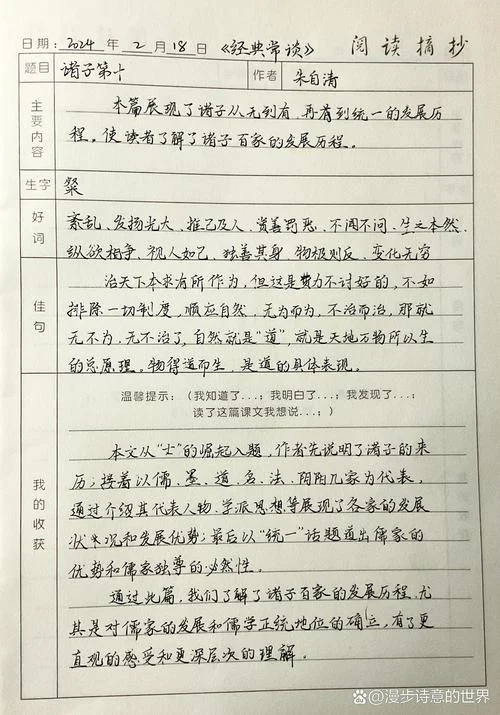 日期：2024 年 2 月 18 日 《经典常谈》 阅读摘抄
题目 诸子第十 作者 朱自清
主要内容
本篇展现了诸子从无到有，再有到统一的发展历
程。使读者了解了诸子百家的发展历程。
生字 粲
好词
紊乱、发扬光大、推己及人、赏善罚恶、不闻不问、生之本然、
纵欲相争、视人如己、独善其身、物极则反、变化无穷
佳句
治天下本求有所作为，但这是费力不讨好的，不如
排除一切制度，顺应自然，无为而为，不治而治，那就
无不为，无不治了，自然就是“道”，就是天地万物所以生
的总原理。物得道而生，是道的具体表现。
我的收获
温馨提示：（我知道了...；我明白了...；我发现了...；
读了这篇课文我想说...；）
本文从“士”的崛起入题，作者先说明了诸子的来
历；接着以儒、墨、道、名、法、阴阳几家为代表，
通过介绍其代表人物、学派思想等展现了各家的发展
状况和发展优势；最后以“统一”话题道出儒家的
优势和儒家独尊的必然性。
通过此篇，我们了解了诸子百家的发展历程，尤
其是对儒家的发展和儒学正统地位的确立，有了更
直观的感受和更深层次的理解。
@漫步诗意的世界